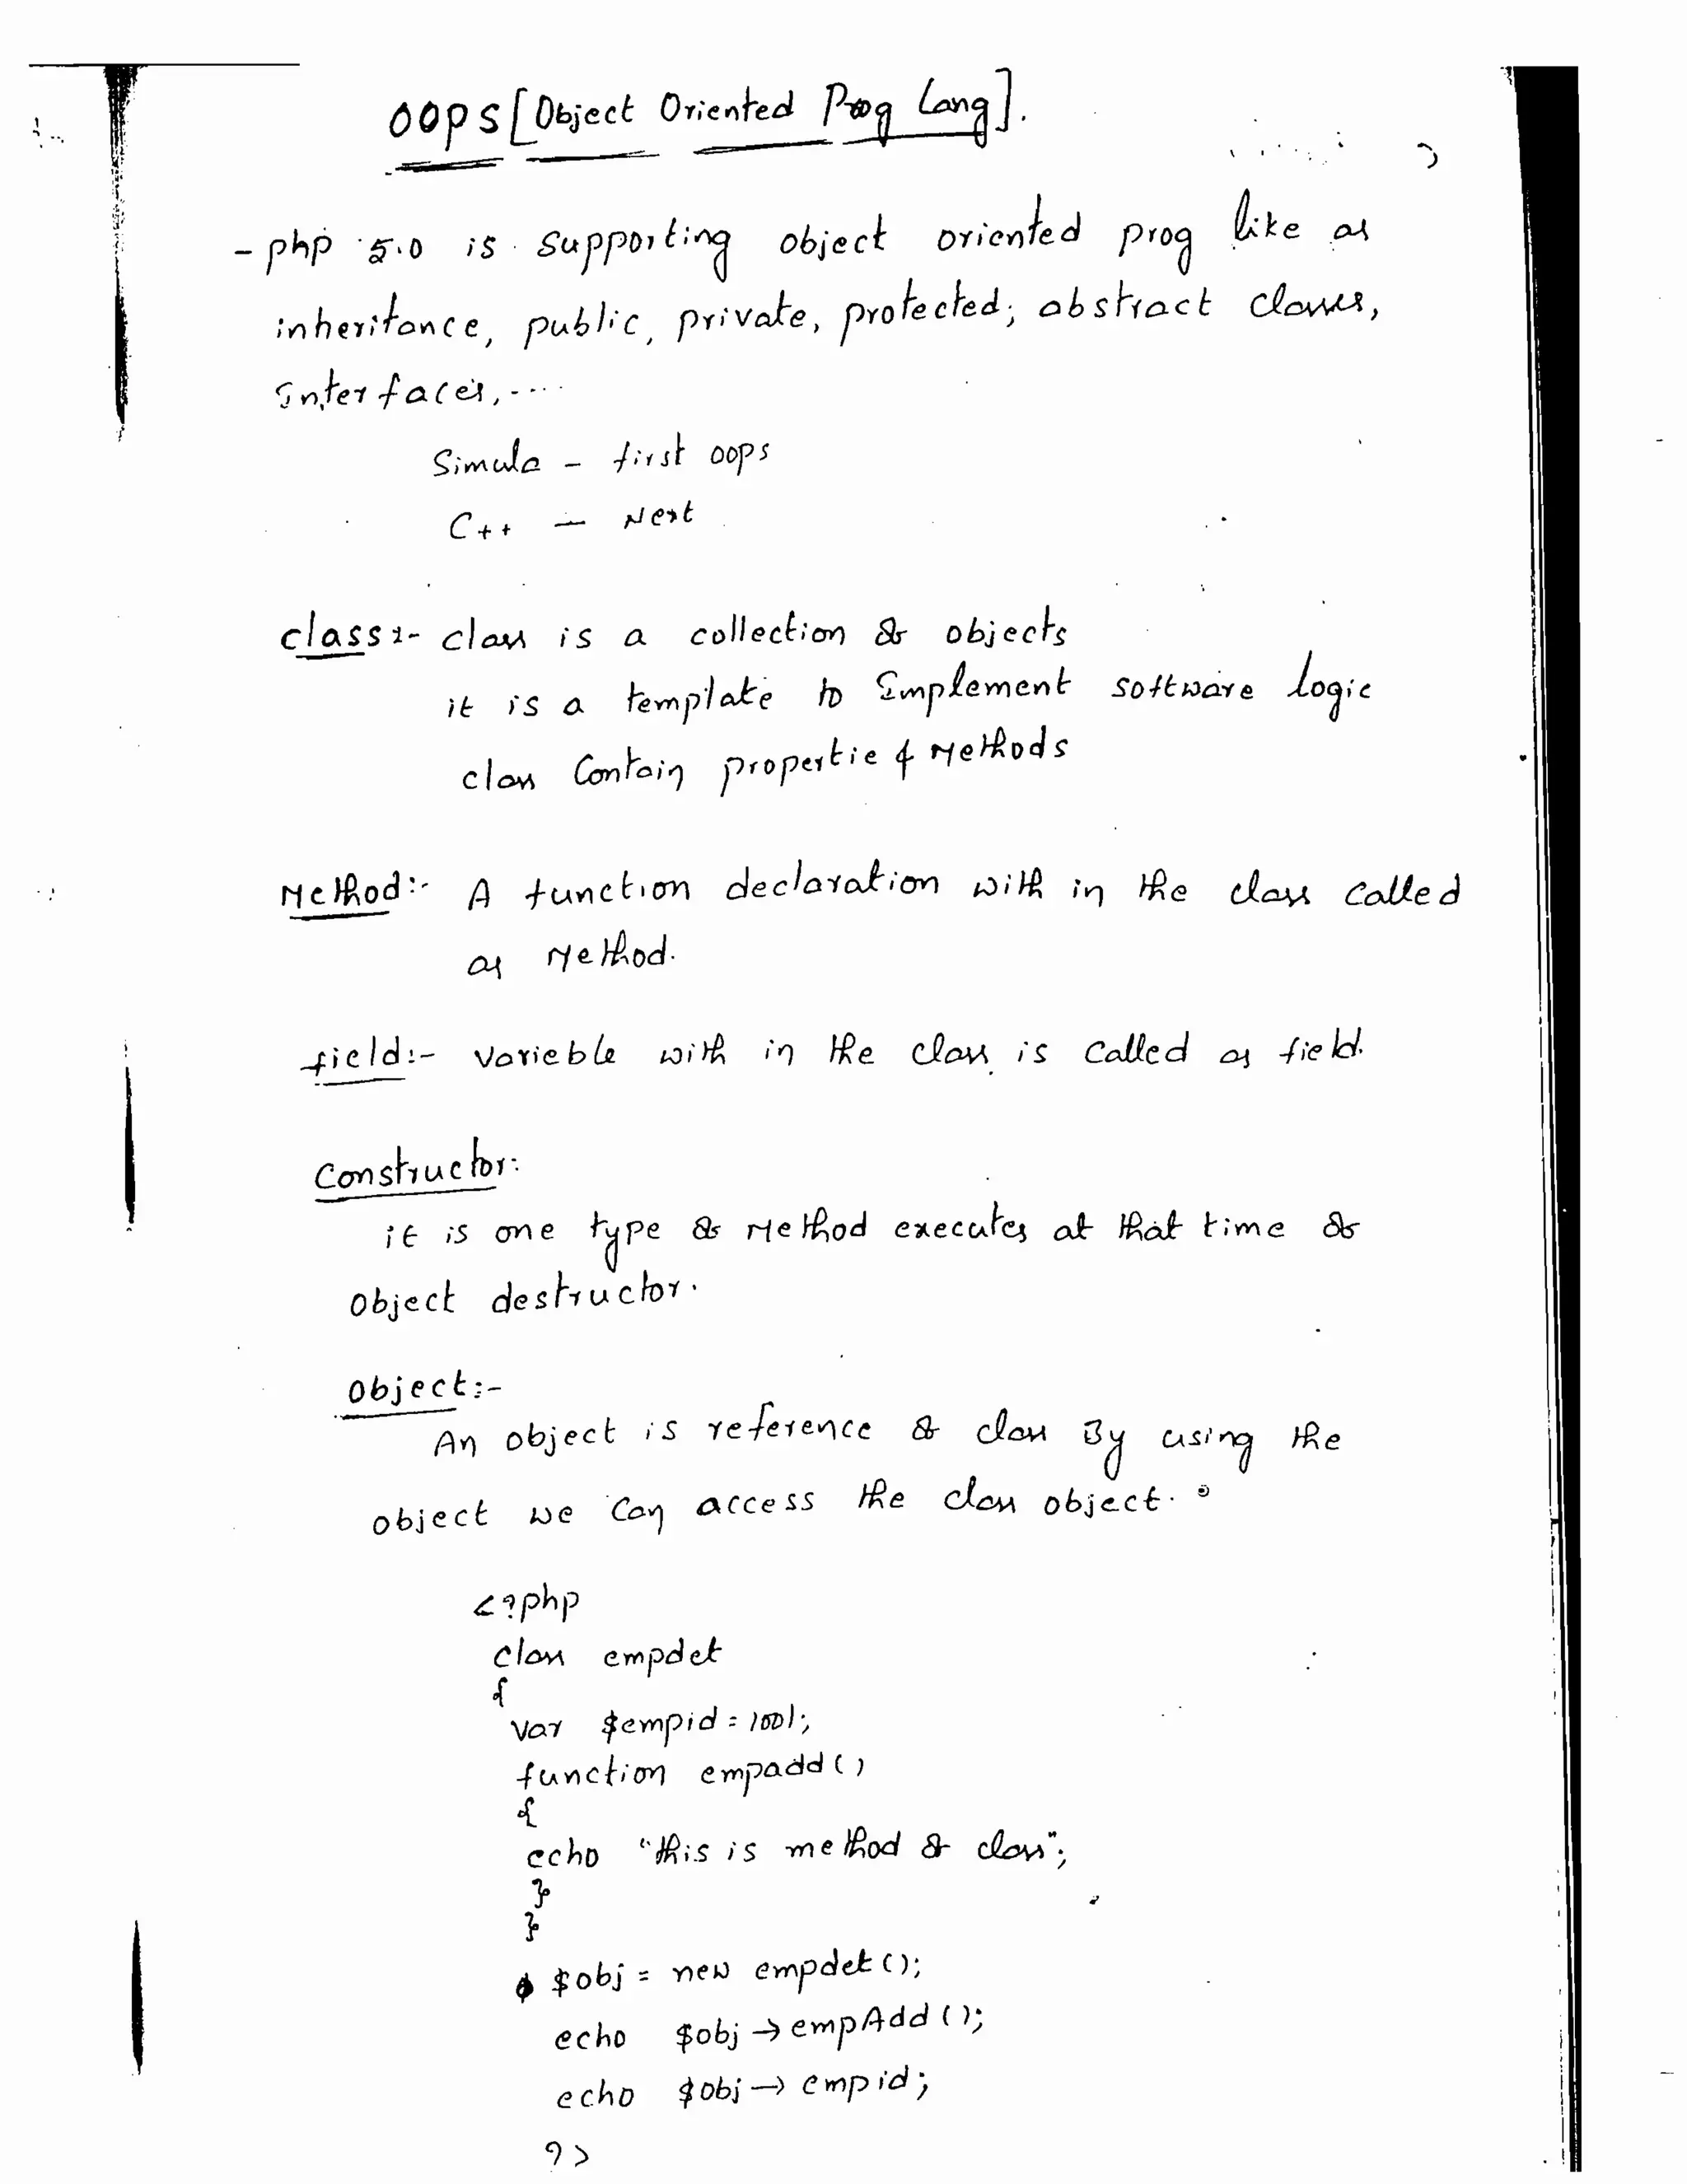 OOPS [Object Oriented Prog Lang].
- php 5.0 is supporting object oriented prog like as
inheritance, public, private, protected; abstract classes,
Interfaces, ....
Simula - first oops
C++ - Next
class :- class is a collection of objects
it is a template to Implement software logic
class Contain propertie & Methods
Method :- A function declaration with in the class called
as Method.
field :- Varieble with in the class is called as field.
Constructor:
it is one type of Method executes at that time of
Object destructor.
Object :-
An object is reference of class By using the
object we can access the class object.
<?php
class empdet
{
var $empid = 1001;
function empadd()
{
echo "this is method of class";
}
}
$obj = new empdet();
echo $obj → empAdd();
echo $obj → empid;
?>